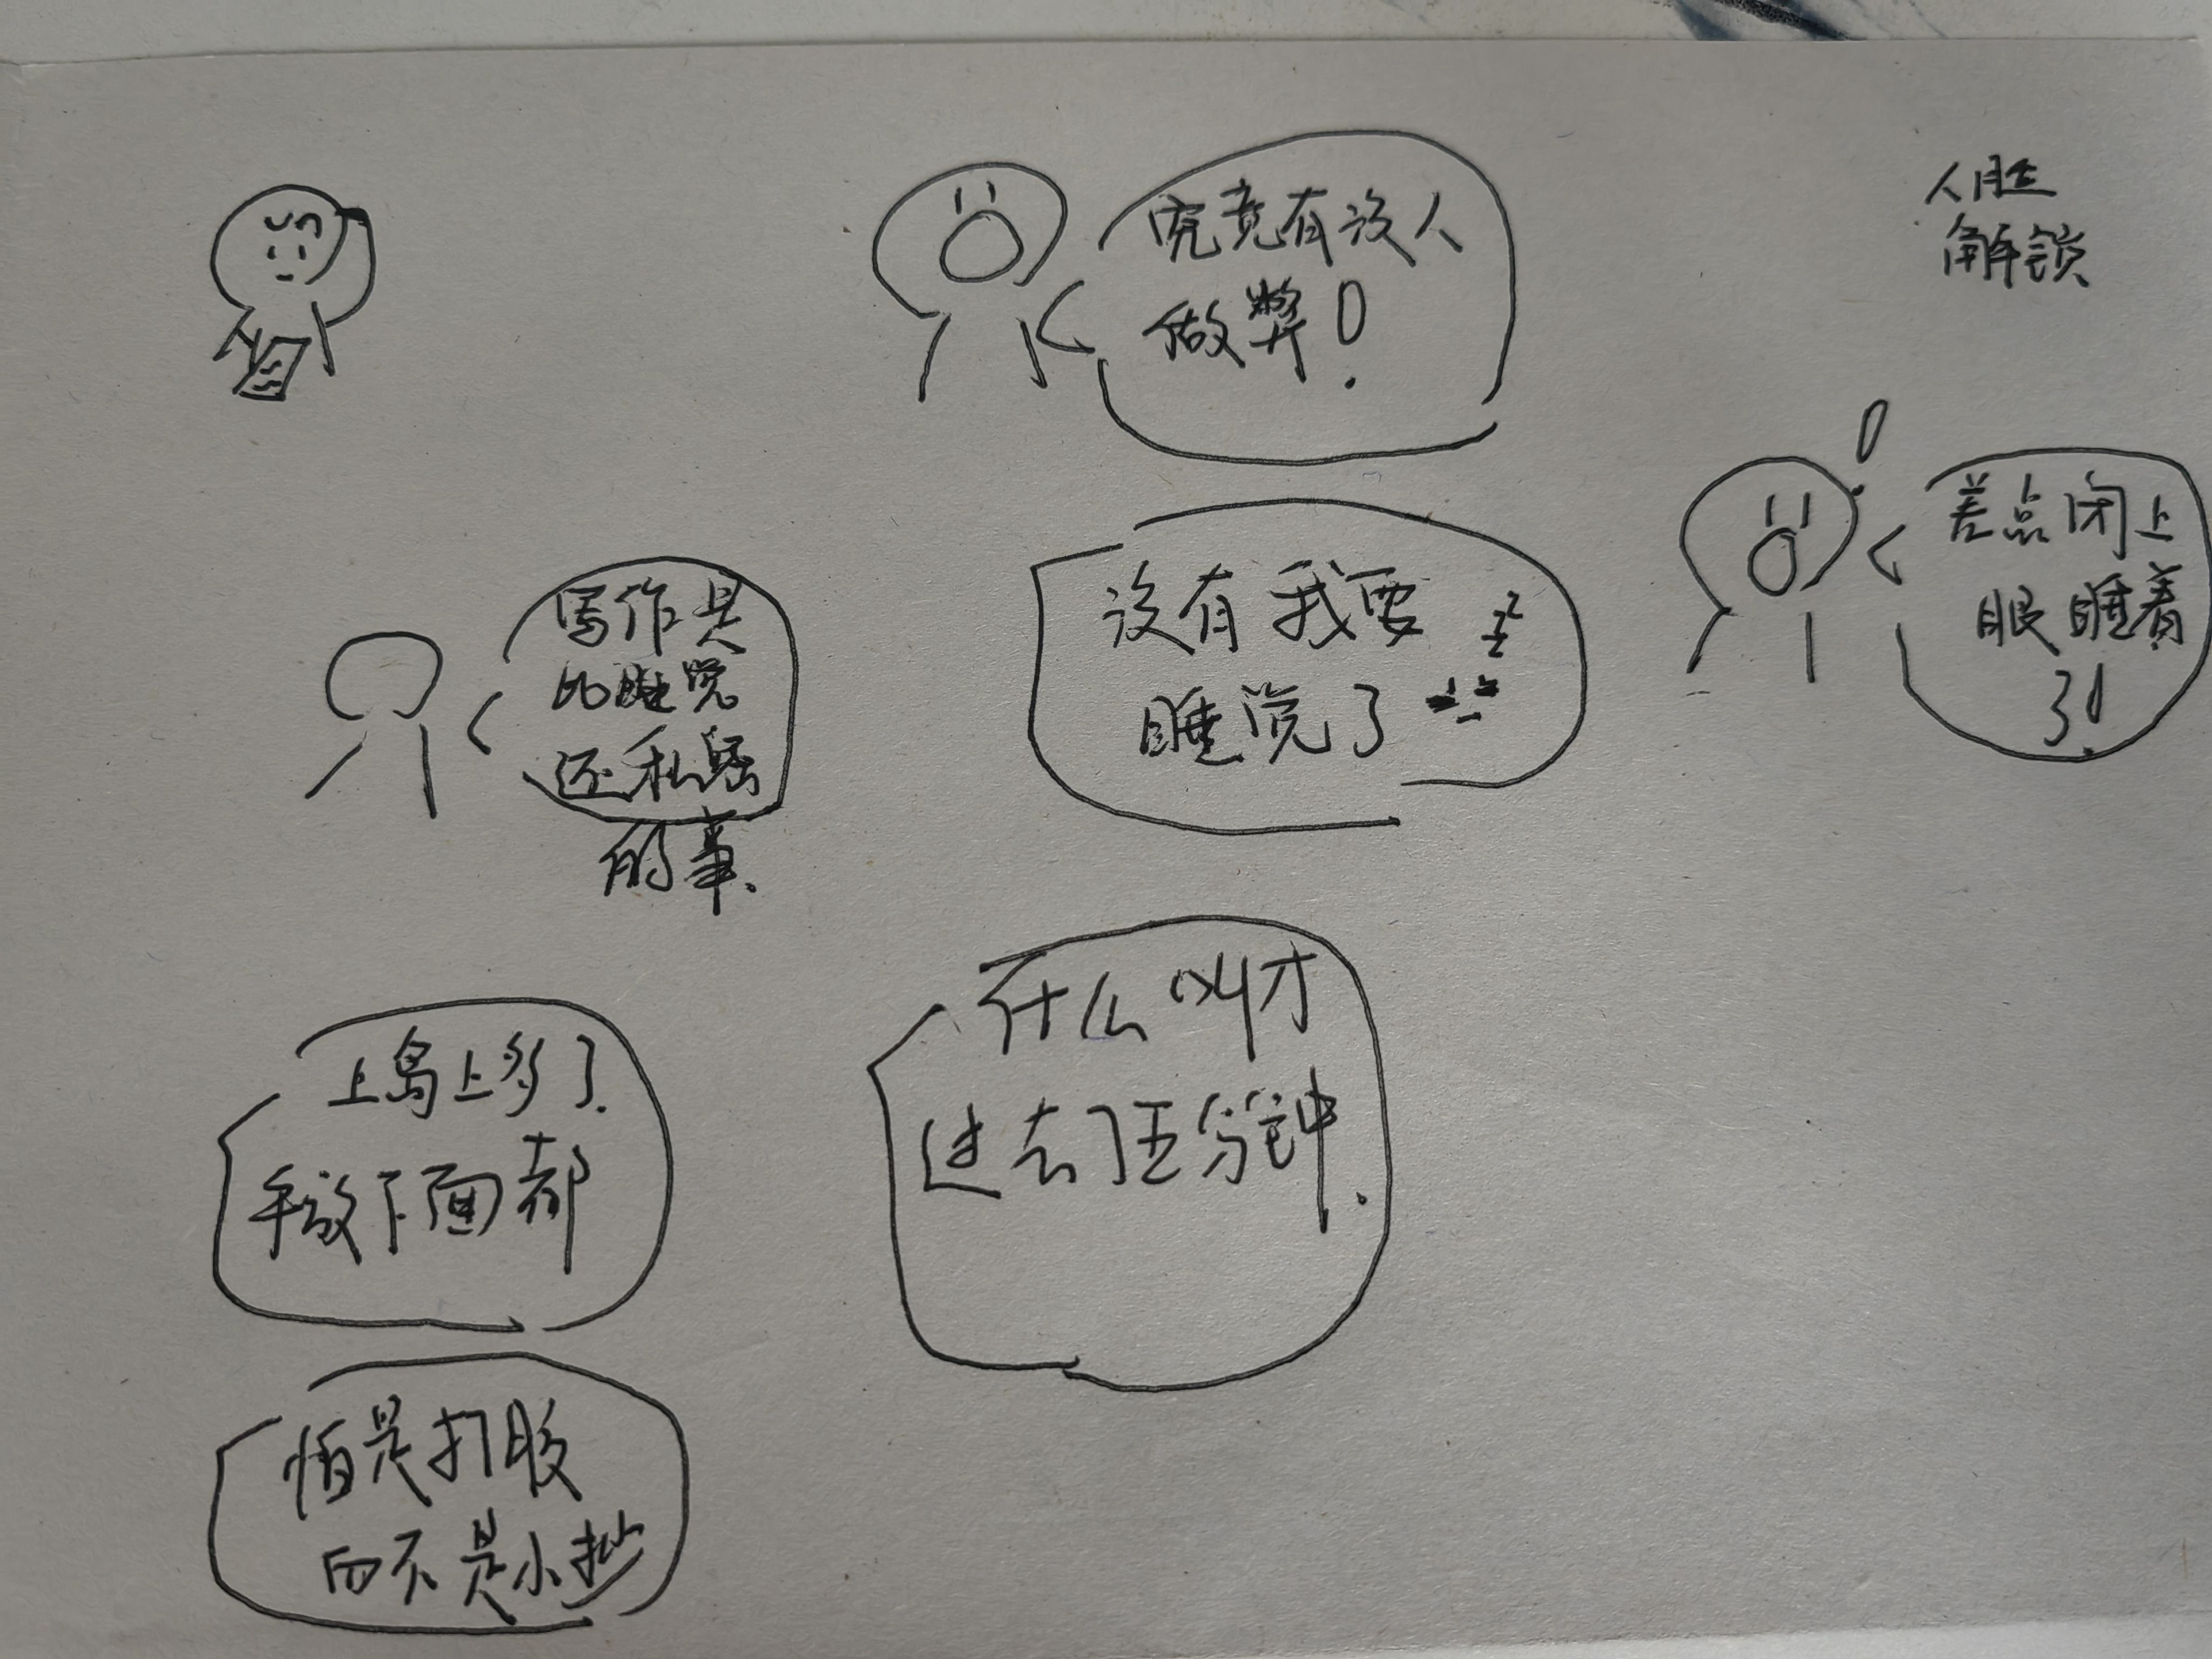 究竟有没人
做弊!
人脏
解锁
差点闭上
眼睡着
了!
写作是
比睡觉
还私隐
的事.
没有我要 zzz
睡觉了
上岛上多了.
手放下面都
什么叫才
过去伍分钟.
怕是打股
而不是小抄